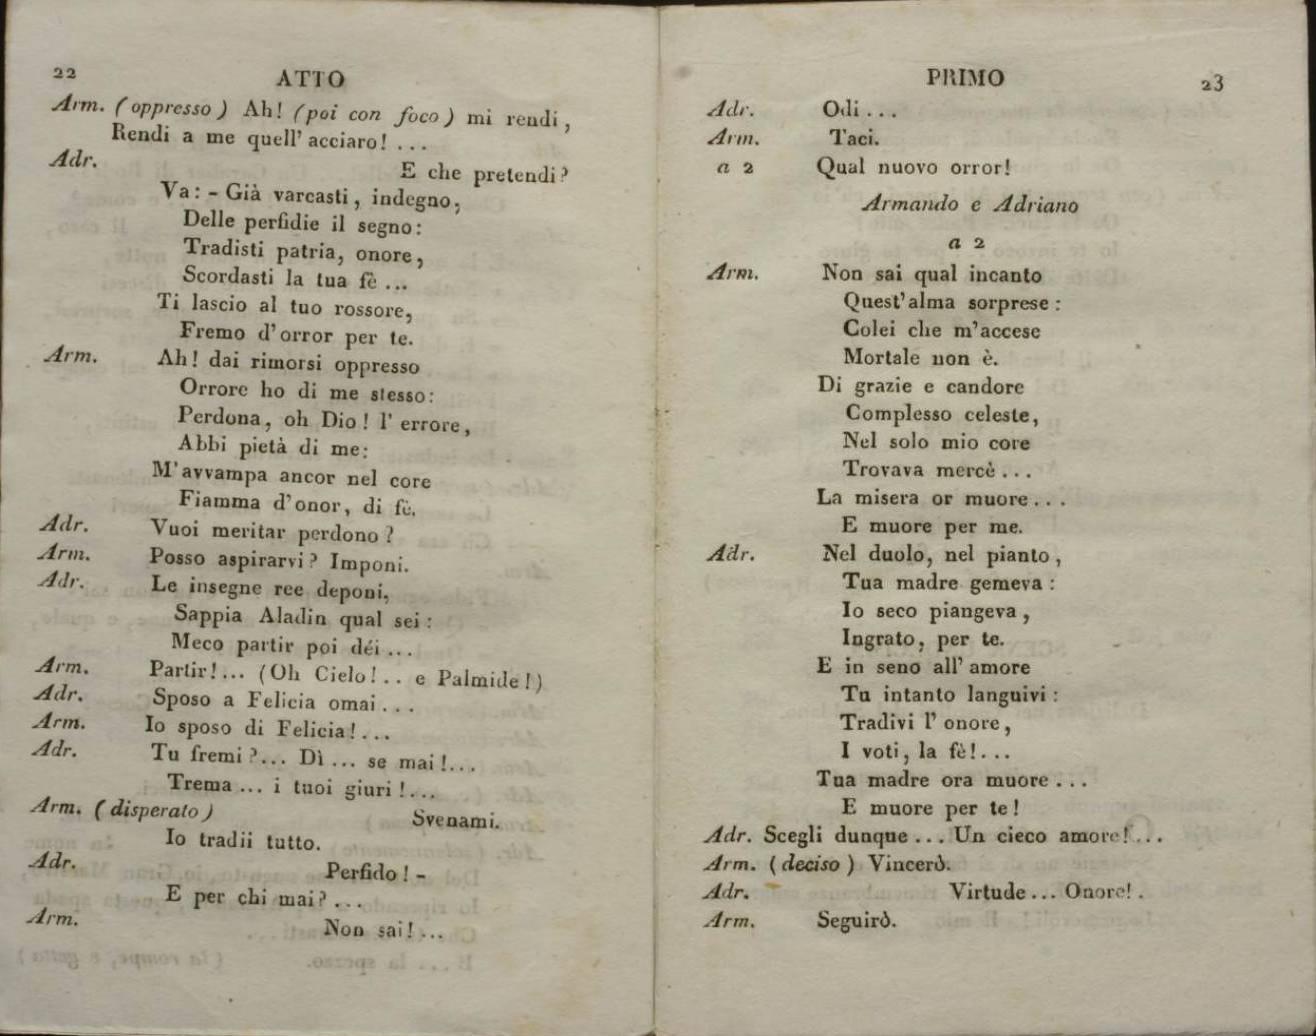 22 ATTO
Arm. (oppresso) Ah! (poi con foco) mi rendi,
Rendi a me quell' acciaro! ...
Adr. E che pretendi?
Va: - Già varcasti, indegno,
Delle perfidie il segno:
Tradisti patria, onore,
Scordasti la tua fè ...
Ti lascio al tuo rossore,
Fremo d'orror per te.
Arm. Ah! dai rimorsi oppresso
Orrore ho di me stesso:
Perdona, oh Dio! l' errore,
Abbi pietà di me:
M'avvampa ancor nel core
Fiamma d'onor, di fè.
Adr. Vuoi meritar perdono?
Arm. Posso aspirarvi? Imponi.
Adr. Le insegne ree deponi,
Sappia Aladin qual sei:
Meco partir poi déi ...
Arm. Partir!... (Oh Cielo!.. e Palmide!)
Adr. Sposo a Felicia omai ...
Arm. Io sposo di Felicia!...
Adr. Tu fremi?... Dì ... se mai!...
Trema ... i tuoi giuri!...
Arm. (disperato) Svenami.
Io tradii tutto.
Adr. Perfido! -
E per chi mai? ...
Arm. Non sai! ...
PRIMO 23
Adr. Odi ...
Arm. Taci.
a 2 Qual nuovo orror!
Armando e Adriano
a 2
Arm. Non sai qual incanto
Quest'alma sorprese:
Colei che m'accese
Mortale non è.
Di grazie e candore
Complesso celeste,
Nel solo mio core
Trovava mercè ...
La misera or muore ...
E muore per me.
Adr. Nel duolo, nel pianto,
Tua madre gemeva:
Io seco piangeva,
Ingrato, per te.
E in seno all' amore
Tu intanto languivi:
Tradivi l' onore,
I voti, la fè!...
Tua madre ora muore ...
E muore per te!
Adr. Scegli dunque ... Un cieco amore! ...
Arm. (deciso) Vincerò.
Adr. Virtude ... Onore!.
Arm. Seguirò.